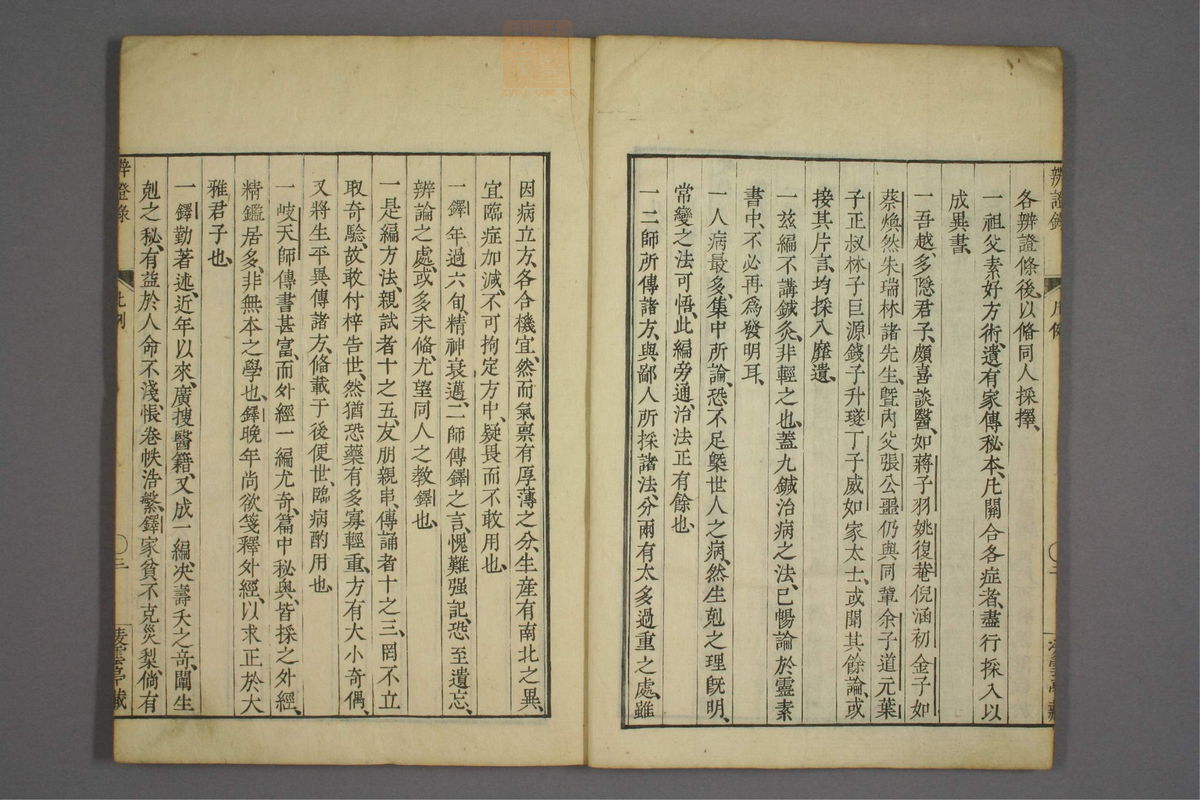 各辨證條後以俻同人採擇、
一祖父素好方術、遺有家傳秘本、凡關合各症者、盡行採入以
成異書、
一吾越、多隱君子、頗喜談醫、如蔣子羽姚復菴倪涵初金子如
蔡煥然朱瑞林諸先生、曁内父張公噩仍與同輩余子道元葉
子正叔林子巨源錢子升璲丁子威如家太士、或聞其餘論、或
接其片言、均採入靡遺、
一兹編不講鍼灸、非輕之也、蓋九鍼治病之法、已暢論於靈素
書中、不必再爲發明耳、
一人病最多、集中所論、恐不足槩世人之病、然生剋之理旣明、
常變之法可悟、此編旁通、治法正有餘也、
一二師所傳諸方、與鄙人所採諸法、分兩有太多過重之處、雖
因病立方、各合機宜、然而氣禀有厚薄之分、生産有南北之異、
宜臨症加減、不可拘定方中、疑畏而不敢用也、
一鐸年過六旬、精神衰邁、二師傳鐸之言、愧難强記、恐至遺忘、
辨論之處、或多未俻、尤望同人之教鐸也、
一是編方法、親試者十之五、友朋親串、傳誦者十之三、罔不立
取奇驗、故敢付梓告世、然猶恐藥有多寡輕重、方有大小奇偶、
又將生平異傳諸方、俻載于後便世、臨病酌用也
一岐天師傳書甚富、而外經一編尤奇、篇中秘奥、皆採之外經、
精鑑居多、非無本之學也、鐸晚年尚欲箋釋外經、以求正於大
雅君子也、
一鐸勤著述、近年以來、廣搜醫籍、又成一編、决壽夭之竒、闡生
剋之秘、有益於人命不淺、悵卷帙浩繁、鐸家貧不克災梨、倘有
辨證錄
凡例
〇三